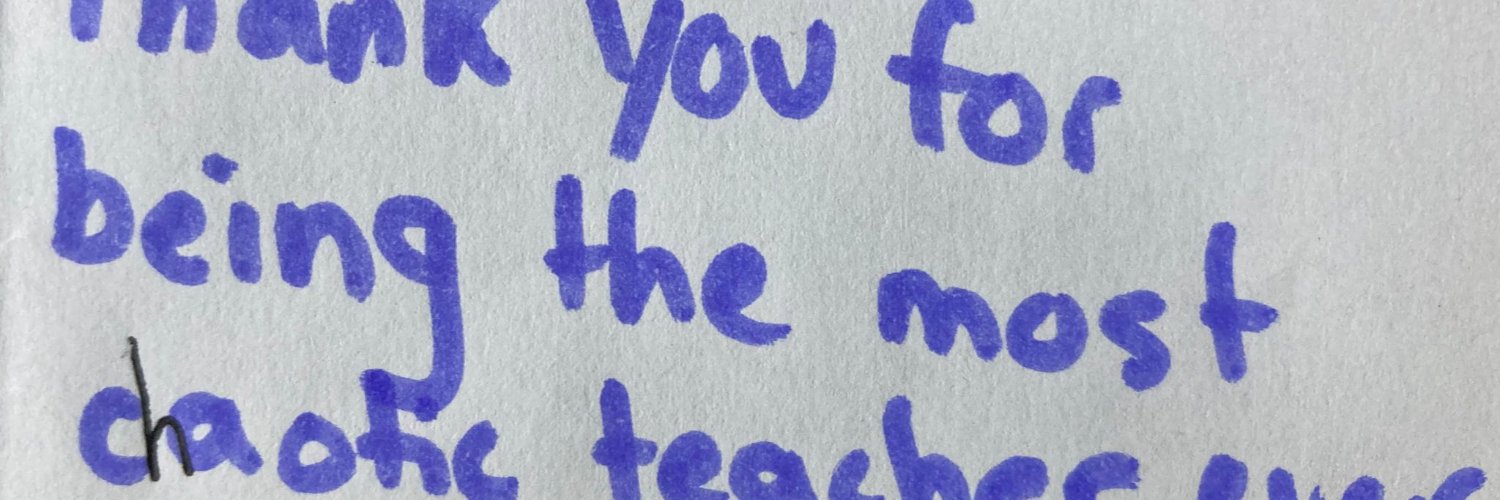 Thank you for
being the most
chaotic teacher ever